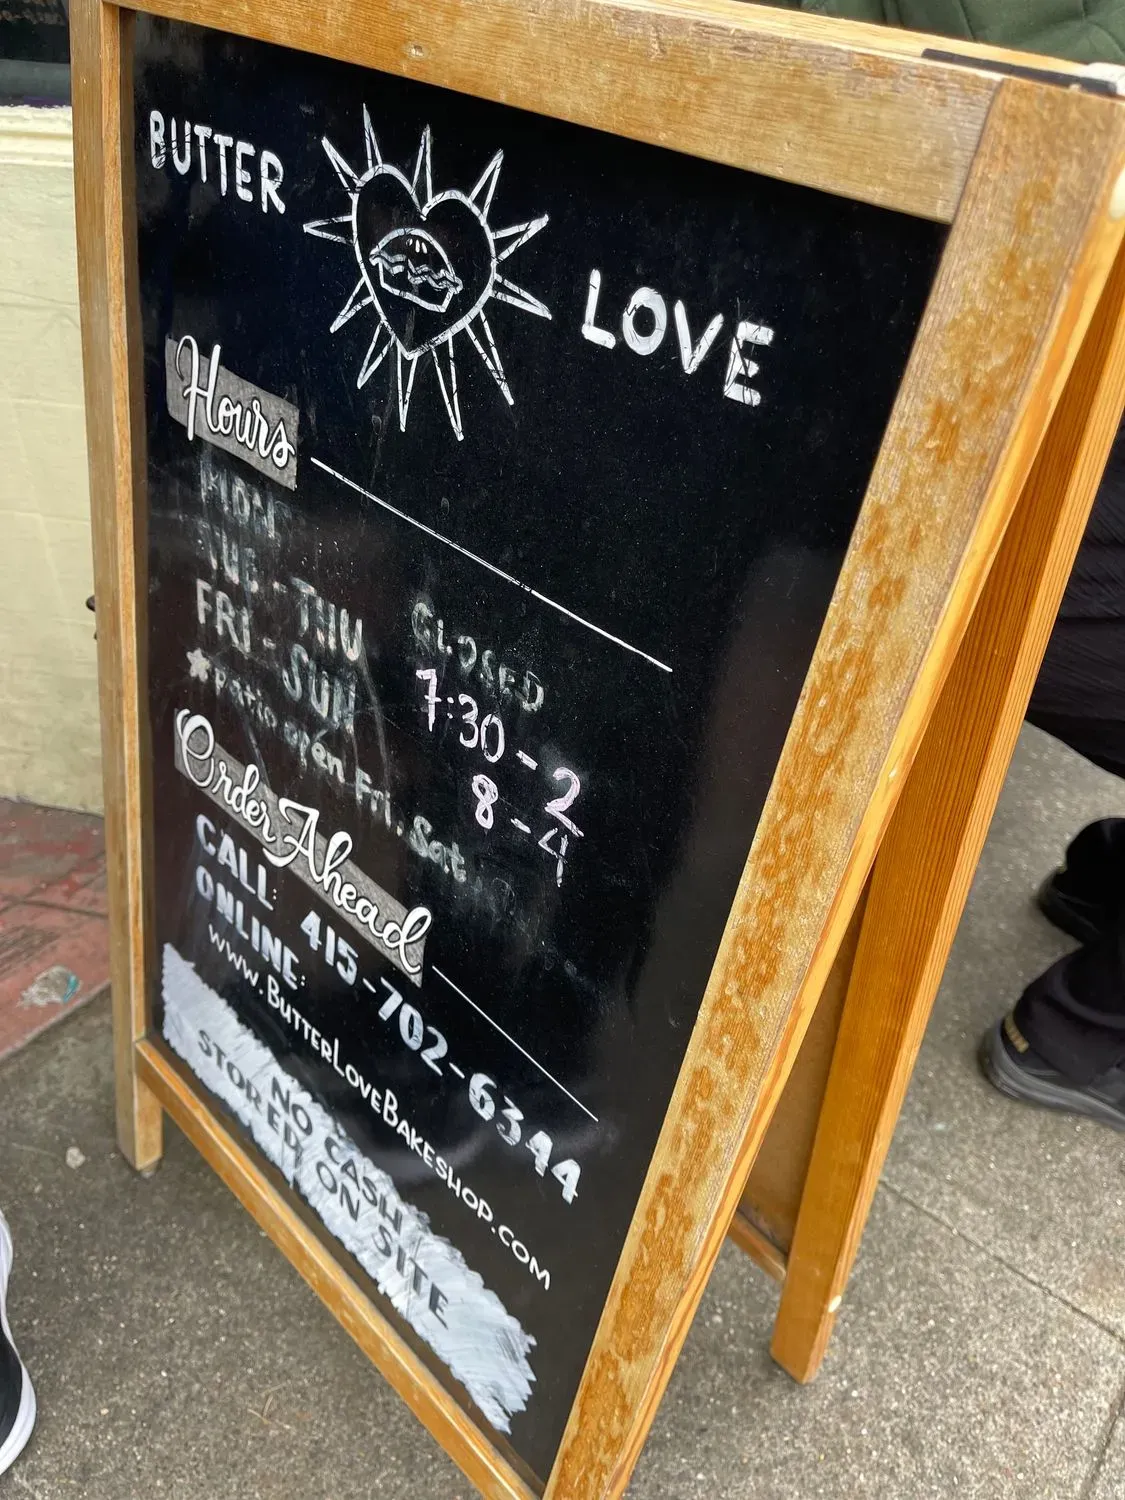 BUTTER LOVE
Hours
MON CLOSED
TUE - THU 7:30 - 2
FRI - SUN 8 - 4
*patio open Fri. Sat.
Order Ahead
CALL: 415-702-6344
ONLINE:
www.ButterLoveBakeshop.com
NO CASH
STORED ON SITE